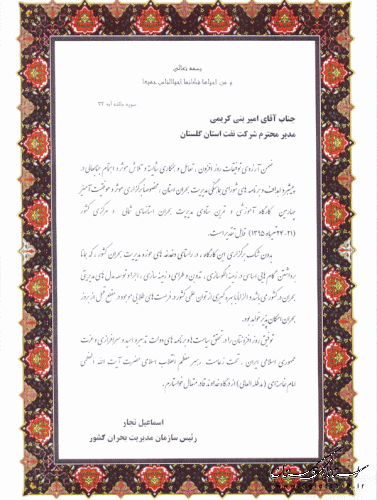 بسمه تعالی
و من احیاها فکانما احیاالناس جمیعا
سوره مائده آیه ۳۲
جناب آقای امیر بنی کریمی
مدیر محترم شرکت نفت استان گلستان
ضمن آرزوی توفیقات روز افزون، تعامل و همکاری شایسته و تلاش موثر و اهتمام جنابعالی در
پیشبرد اهداف و برنامه های شورای هماهنگی مدیریت بحران استان، مخصوصاً برگزاری موثر و موفقیت آمیز
چهارمین کارگاه آموزشی و تمرین ستادی مدیریت بحران استانهای شمالی و مرکزی کشور
(۲۱-۲۴ تیرماه ۱۳۹۵) قابل تقدیر است.
بدون شک برگزاری این کارگاه، در راستای دغدغه های حوزه مدیریت بحران کشور، که همانا
برداشتن گام هایی اساسی در زمینه الگوسازی، تدوین و طراحی و زمینه سازی، اجرا و توسعه مدل های مدیریتی
بحران در کشور می باشد و الزاماً با بهره گیری از توان علمی کشور و فرصت های طلایی موجود در مقطع قبل از بروز
بحران امکان پذیر خواهد بود.
توفیق روز افزونتان را در تحقق سیاست ها و برنامه های دولت تدبیر و امید و سرافرازی و عزت
جمهوری اسلامی ایران، تحت زعامت رهبر معظم انقلاب اسلامی حضرت آیت الله العظمی
امام خامنه ای (مدظله العالی) از درگاه خداوند قادر متعال خواستارم.
اسماعیل نجار
رئیس سازمان مدیریت بحران کشور